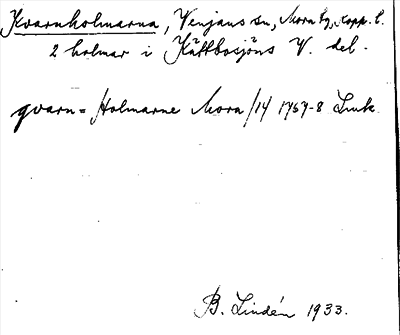 Kvarnholmarna, Venjans sn, Mora tg, Kopp. l.
2 holmar i Kättbosjöns V. del.
qvarn=Holmarne Mora/14 1757-8 Link
B. Lindén 1933.